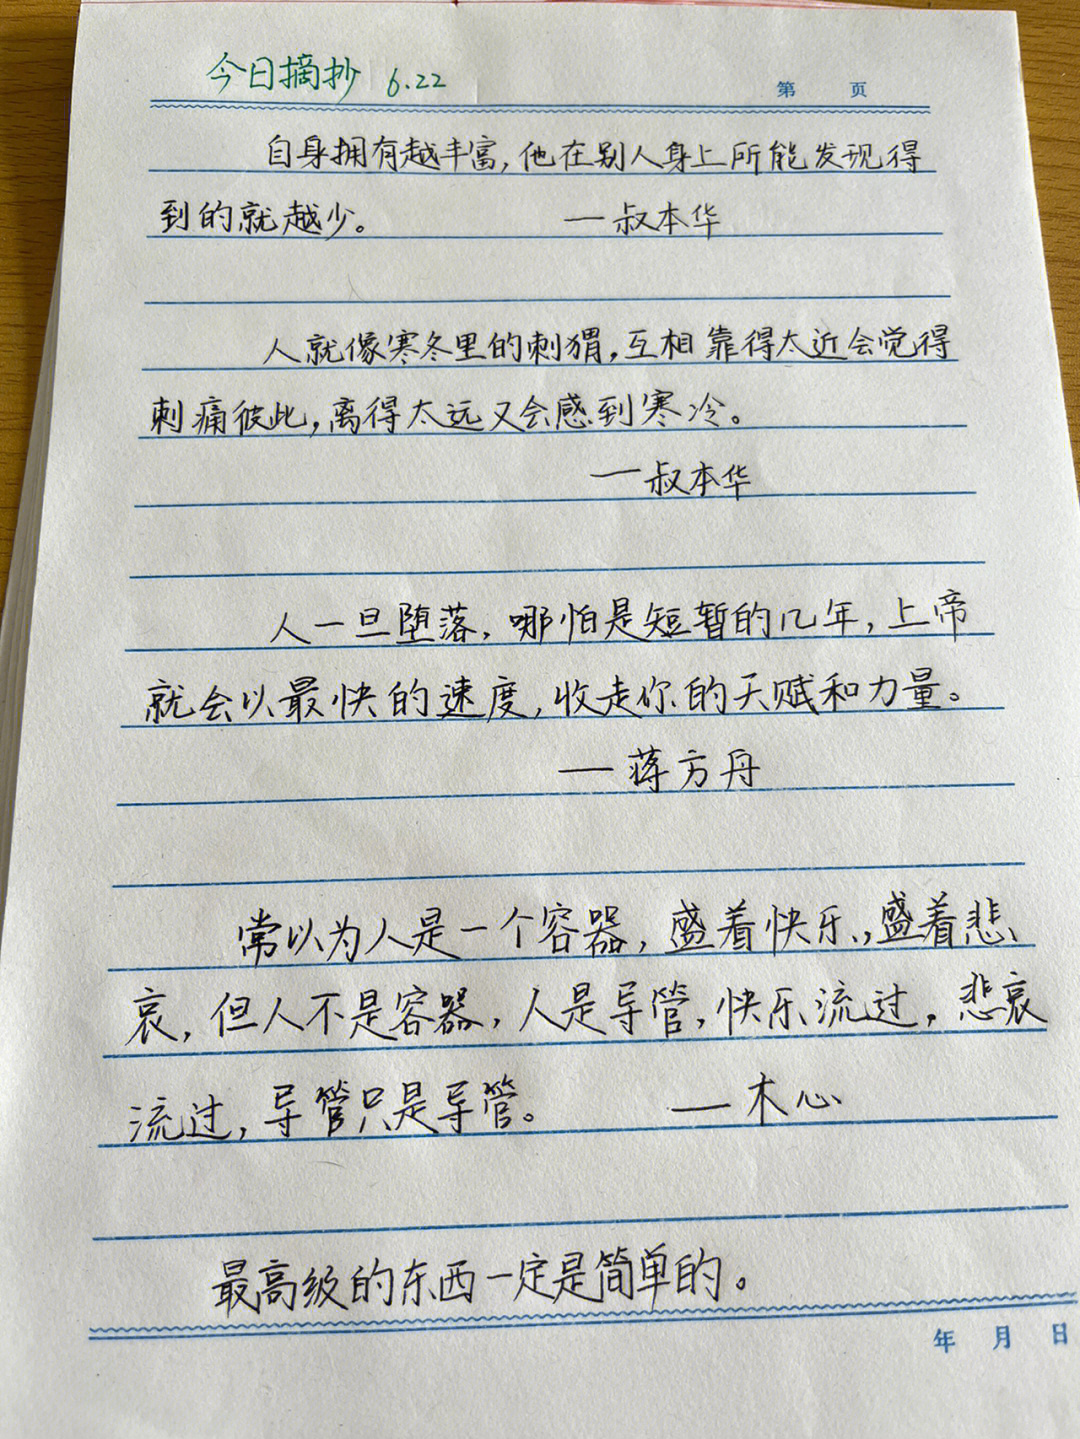 今日摘抄 6.22
第 页
自身拥有越丰富,他在别人身上所能发现得
到的就越少。 —叔本华
人就像寒冬里的刺猬,互相靠得太近会觉得
刺痛彼此,离得太远又会感到寒冷。
—叔本华
人一旦堕落,哪怕是短暂的几年,上帝
就会以最快的速度,收走你的天赋和力量。
—蒋方舟
常以为人是一个容器,盛着快乐,,盛着悲
哀,但人不是容器,人是导管,快乐流过,悲哀
流过,导管只是导管。 —木心
最高级的东西一定是简单的。
年 月 日